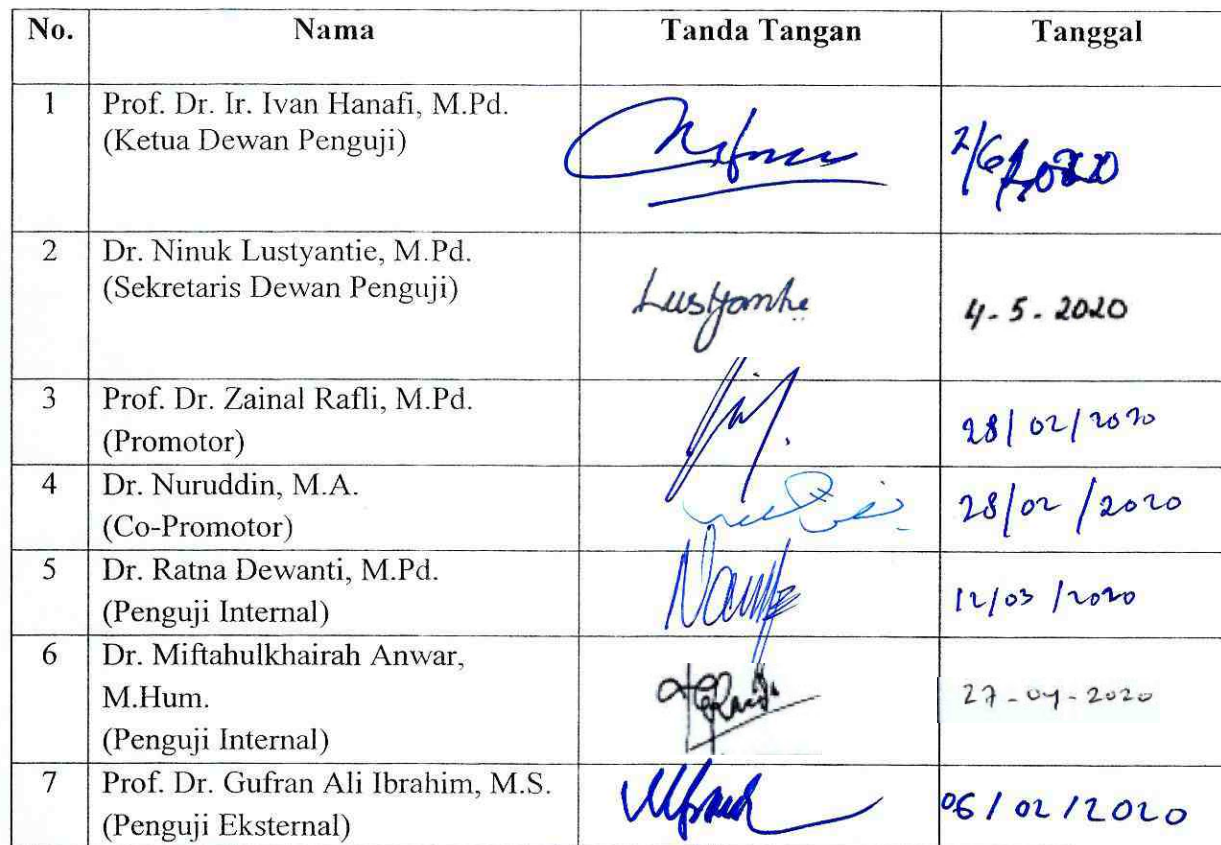 No. Nama Tanda Tangan Tanggal
1 Prof. Dr. Ir. Ivan Hanafi, M.Pd.
(Ketua Dewan Penguji) 2/6 2020
2 Dr. Ninuk Lustyantie, M.Pd.
(Sekretaris Dewan Penguji) Lustyantie 4-5-2020
3 Prof. Dr. Zainal Rafli, M.Pd.
(Promotor) 28/02/2020
4 Dr. Nuruddin, M.A.
(Co-Promotor) 28/02/2020
5 Dr. Ratna Dewanti, M.Pd.
(Penguji Internal) 12/03/2020
6 Dr. Miftahulkhairah Anwar,
M.Hum. 27-04-2020
(Penguji Internal)
7 Prof. Dr. Gufran Ali Ibrahim, M.S.
(Penguji Eksternal) 06/02/2020